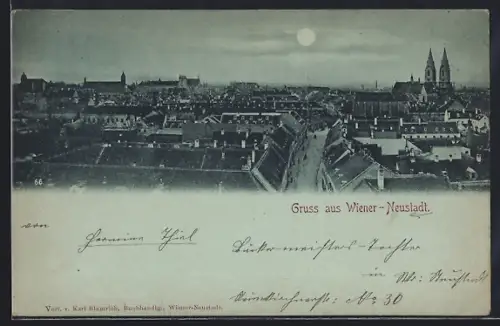 66
Gruss aus Wiener-Neustadt.
von
Hermine Thiel
Bäckermeisters-Tochter
in Wr. Neustadt
No 30
Verl. v. Karl Blumrich, Buchhandlg., Wiener-Neustadt.